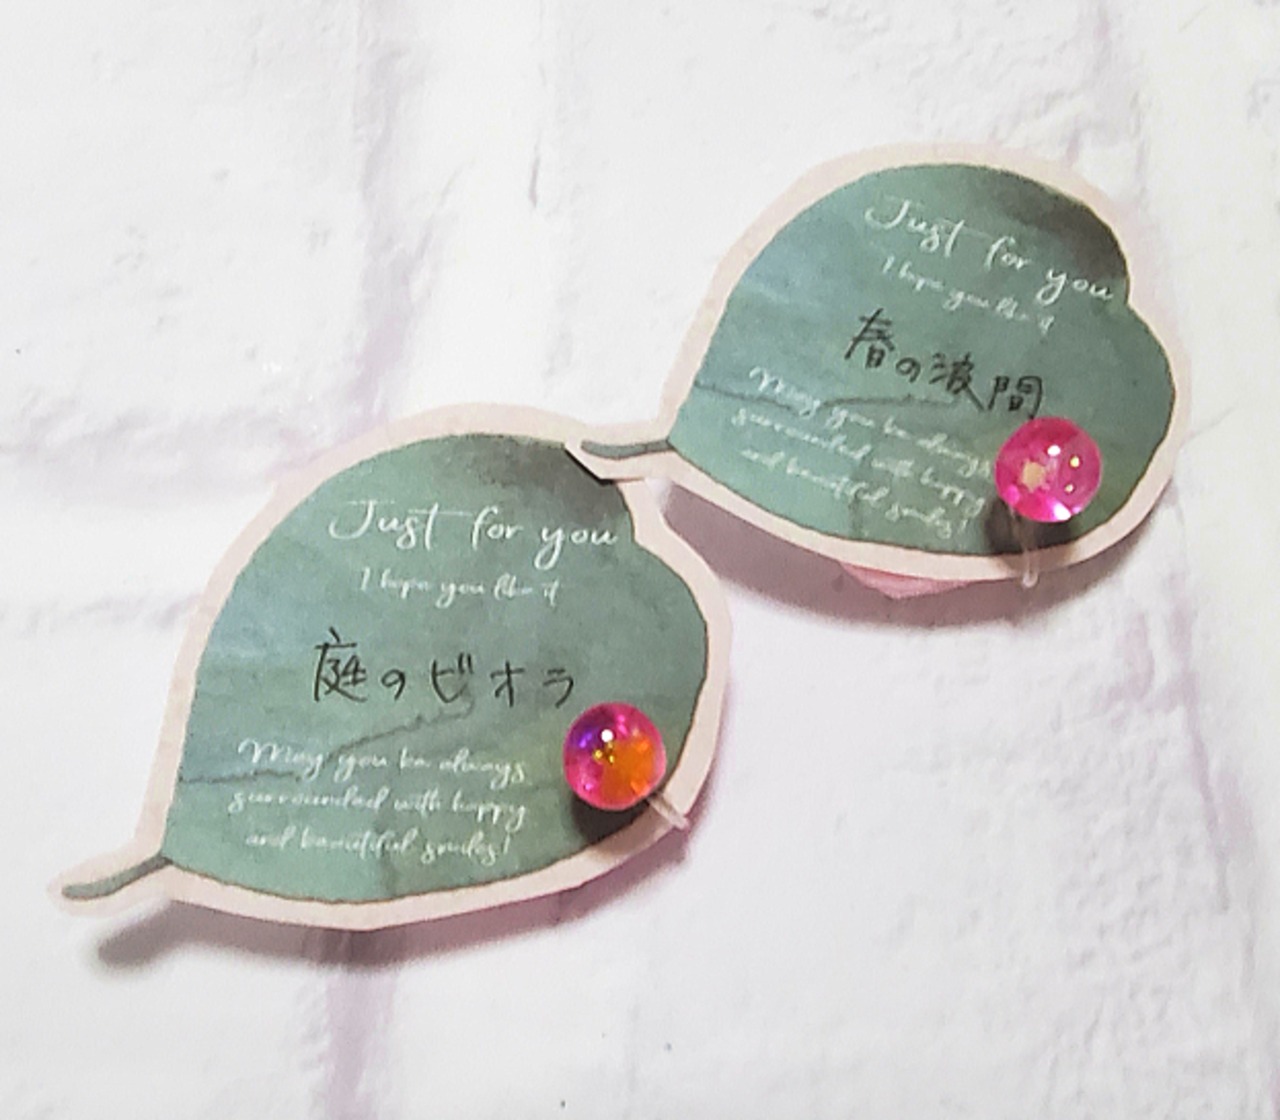 Just for you
I hope you like it
春の波間
May you be always
surrounded with happy
and beautiful smiles!
Just for you
I hope you like it
庭のビオラ
May you be always
surrounded with happy
and beautiful smiles!